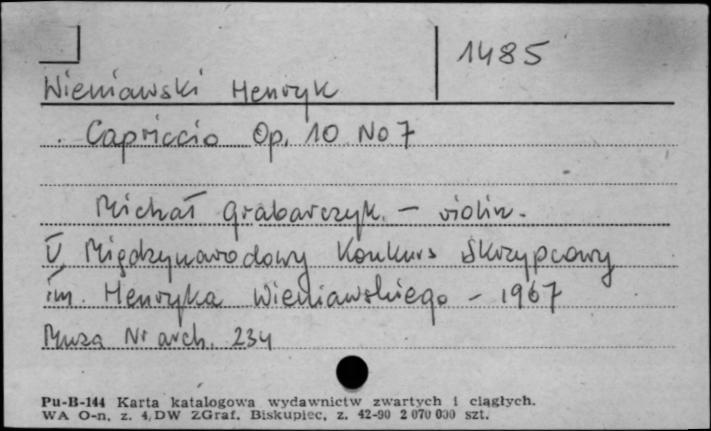 1485
Wieniawski Henryk
Capriccio Op. 10 No 7
Michał Grabarczyk. – violin.
V Międzynarodowy Konkurs Skrzypcowy
im. Henryka Wieniawskiego – 1967
Muza Nr arch. 234
Pu-B-144 Karta katalogowa wydawnictw zwartych i ciągłych.
WA O-n, z. 4, DW ZGraf. Biskupiec, z. 42-90 2 070 000 szt.